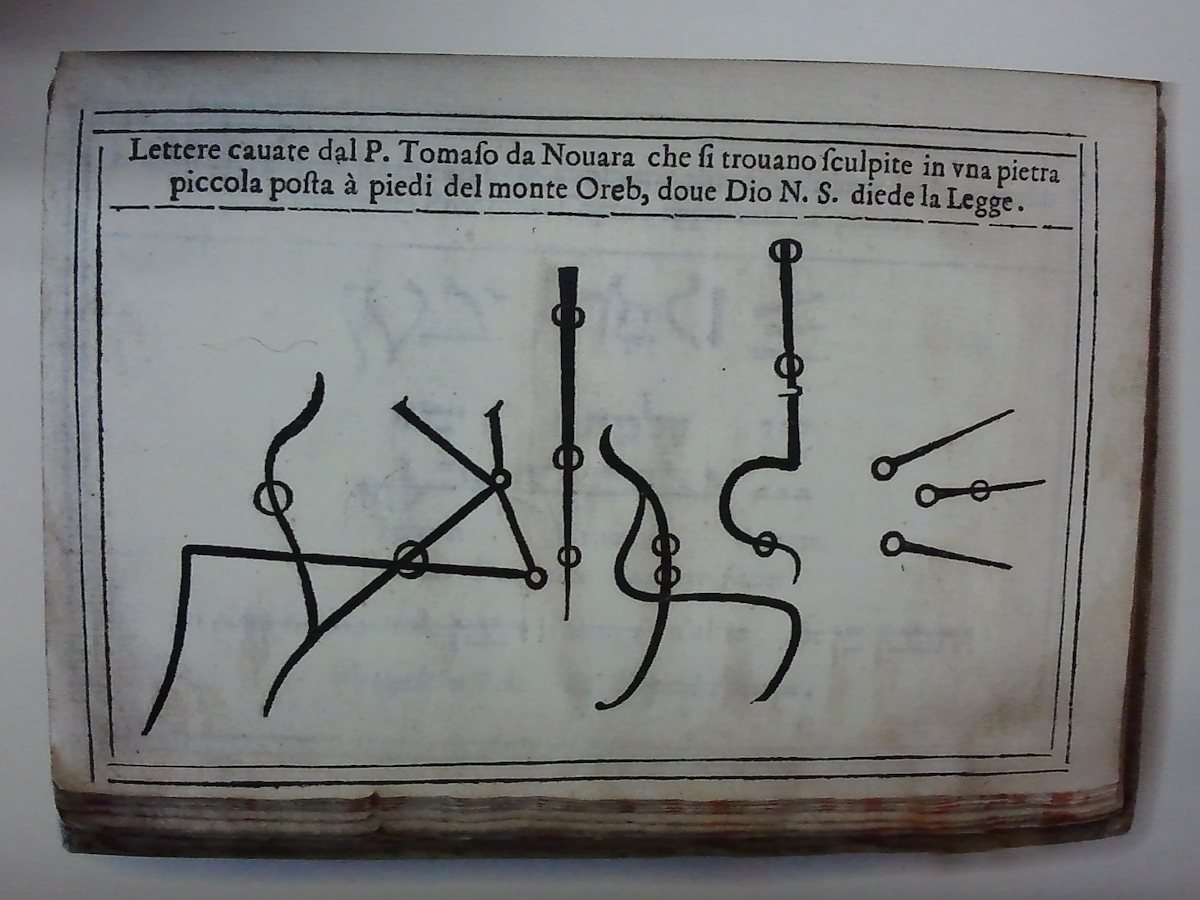 Lettere cauate dal P. Tomaſo da Nouara che ſi trouano ſculpite in vna pietra
piccola poſta à piedi del monte Oreb, doue Dio N. S. diede la Legge.